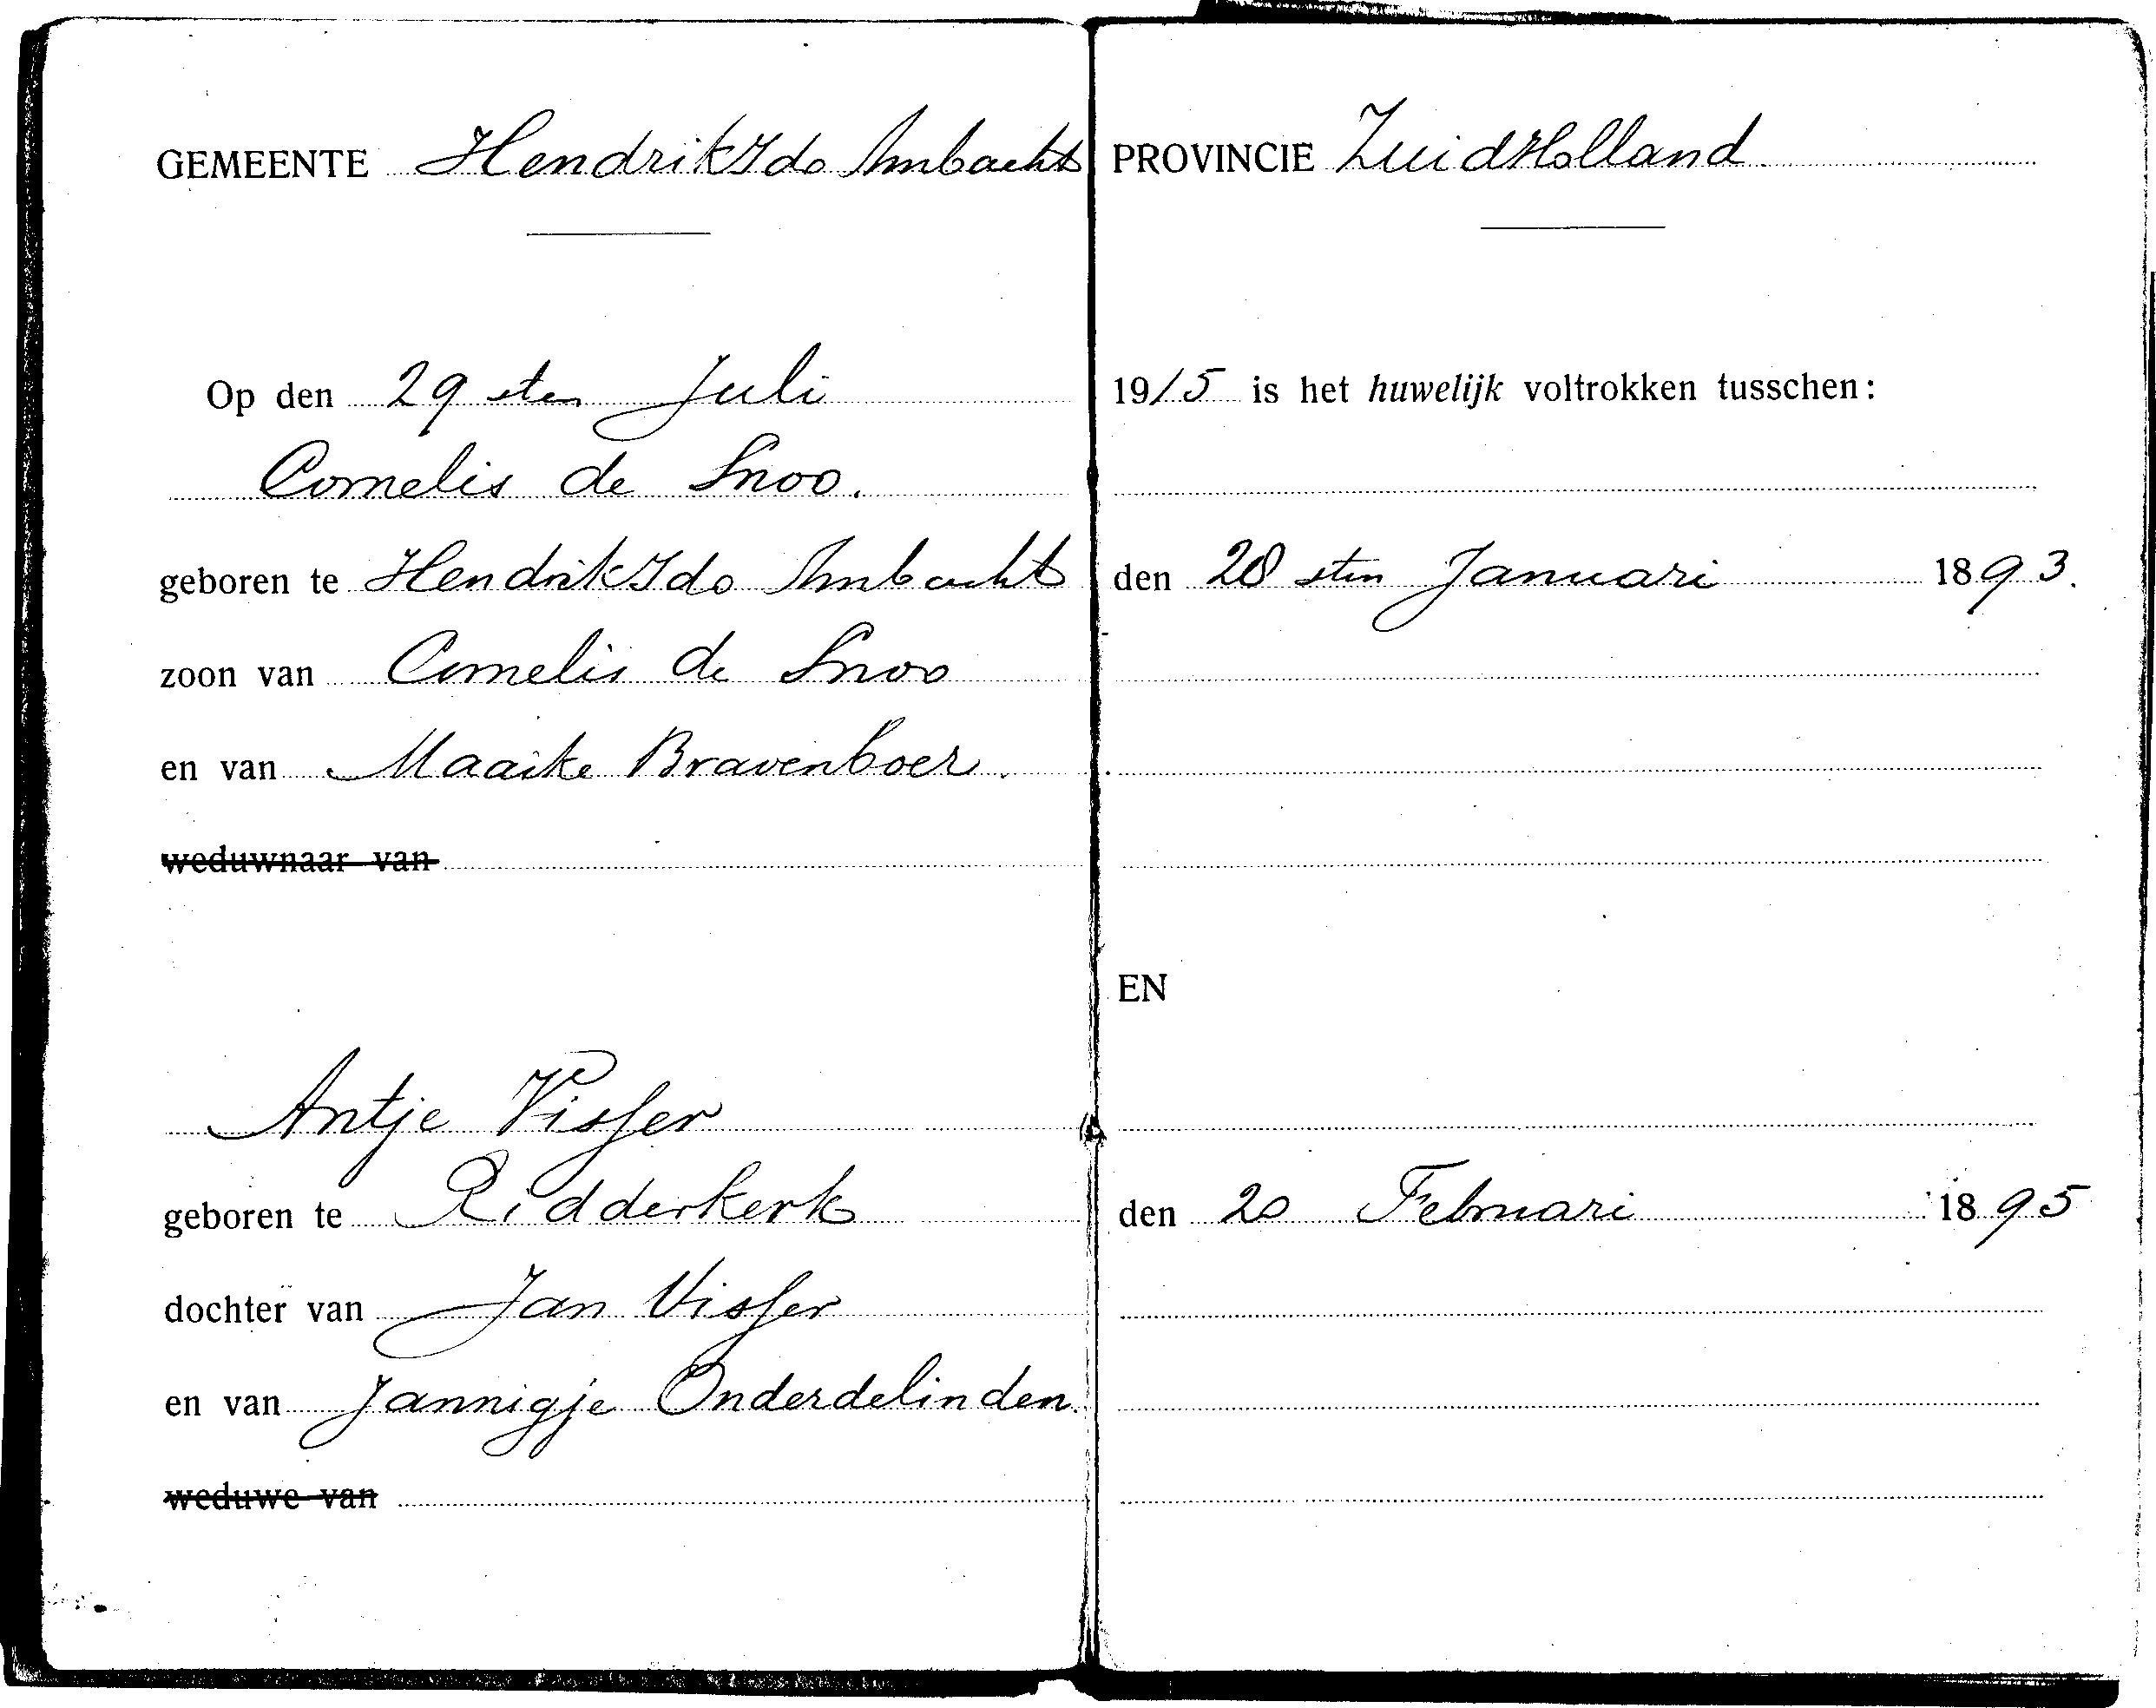 GEMEENTE Hendrik Ido Ambacht PROVINCIE ZuidHolland
Op den 29 sten Juli 1915 is het huwelijk voltrokken tusschen:
Cornelis de Snoo.
geboren te Hendrik Ido Ambacht den 28 sten Januari 1893.
zoon van Cornelis de Snoo
en van Maaike Bravenboer.
weduwnaar van
EN
Antje Visser
geboren te Ridderkerk den 20 Februari 1895
dochter van Jan Visser
en van Jannigje Onderdelinden.
weduwe van